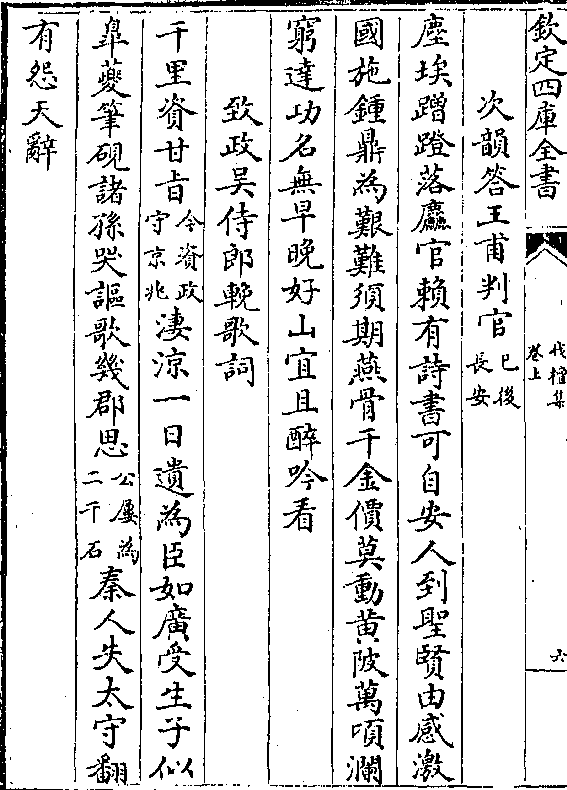 欽定四庫全書
伐檀集
卷上
六
次韻答王甫判官已後長安
塵埃蹭蹬落麤官賴有詩書可自安人到聖賢由感激
國施鍾鼎為艱難須期燕骨千金價莫動黄陂萬頃瀾
窮達功名無早晚好山宜且醉吟看
致政吳侍郎輓歌詞
千里資甘旨今資政守京兆淒涼一日遺為臣如廣受生子似
臯夔筆硯諸孫哭謳歌幾郡思公屢為二千石秦人失太守翻
有怨天辭